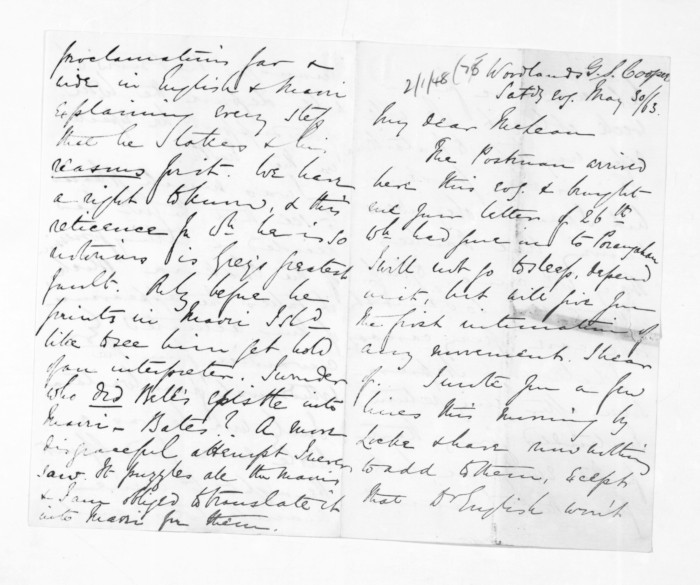 Woodlands G. S. Cooper
Satdy evg. May 30/63.
My dear McLean
The Postman arrived
here this evg & brought
me your letters of 26th
wh had gone on to Porangahau
I will not go to sleep, depend
upon it, but will give you
the first intimation of
any movement I hear
of. I wrote you a few
lines this morning by
Locke & have now nothing
to add to them, except
that Dr English won't
proclamations far &
wide in English & Maori
explaining every step
that he & his
reasons for it. We have
a right to know, & this
reticence for wh he is so
notorious is Grey's greatest
fault. Only before he
prints in Maori I shd
like to see him get hold
of an interpreter. I wonder
who did Bell's epistle into
Maori - Bates? A more
disgraceful attempt I never
saw. It puzzles all the Maoris
& I am obliged to translate it
into Maori for them.